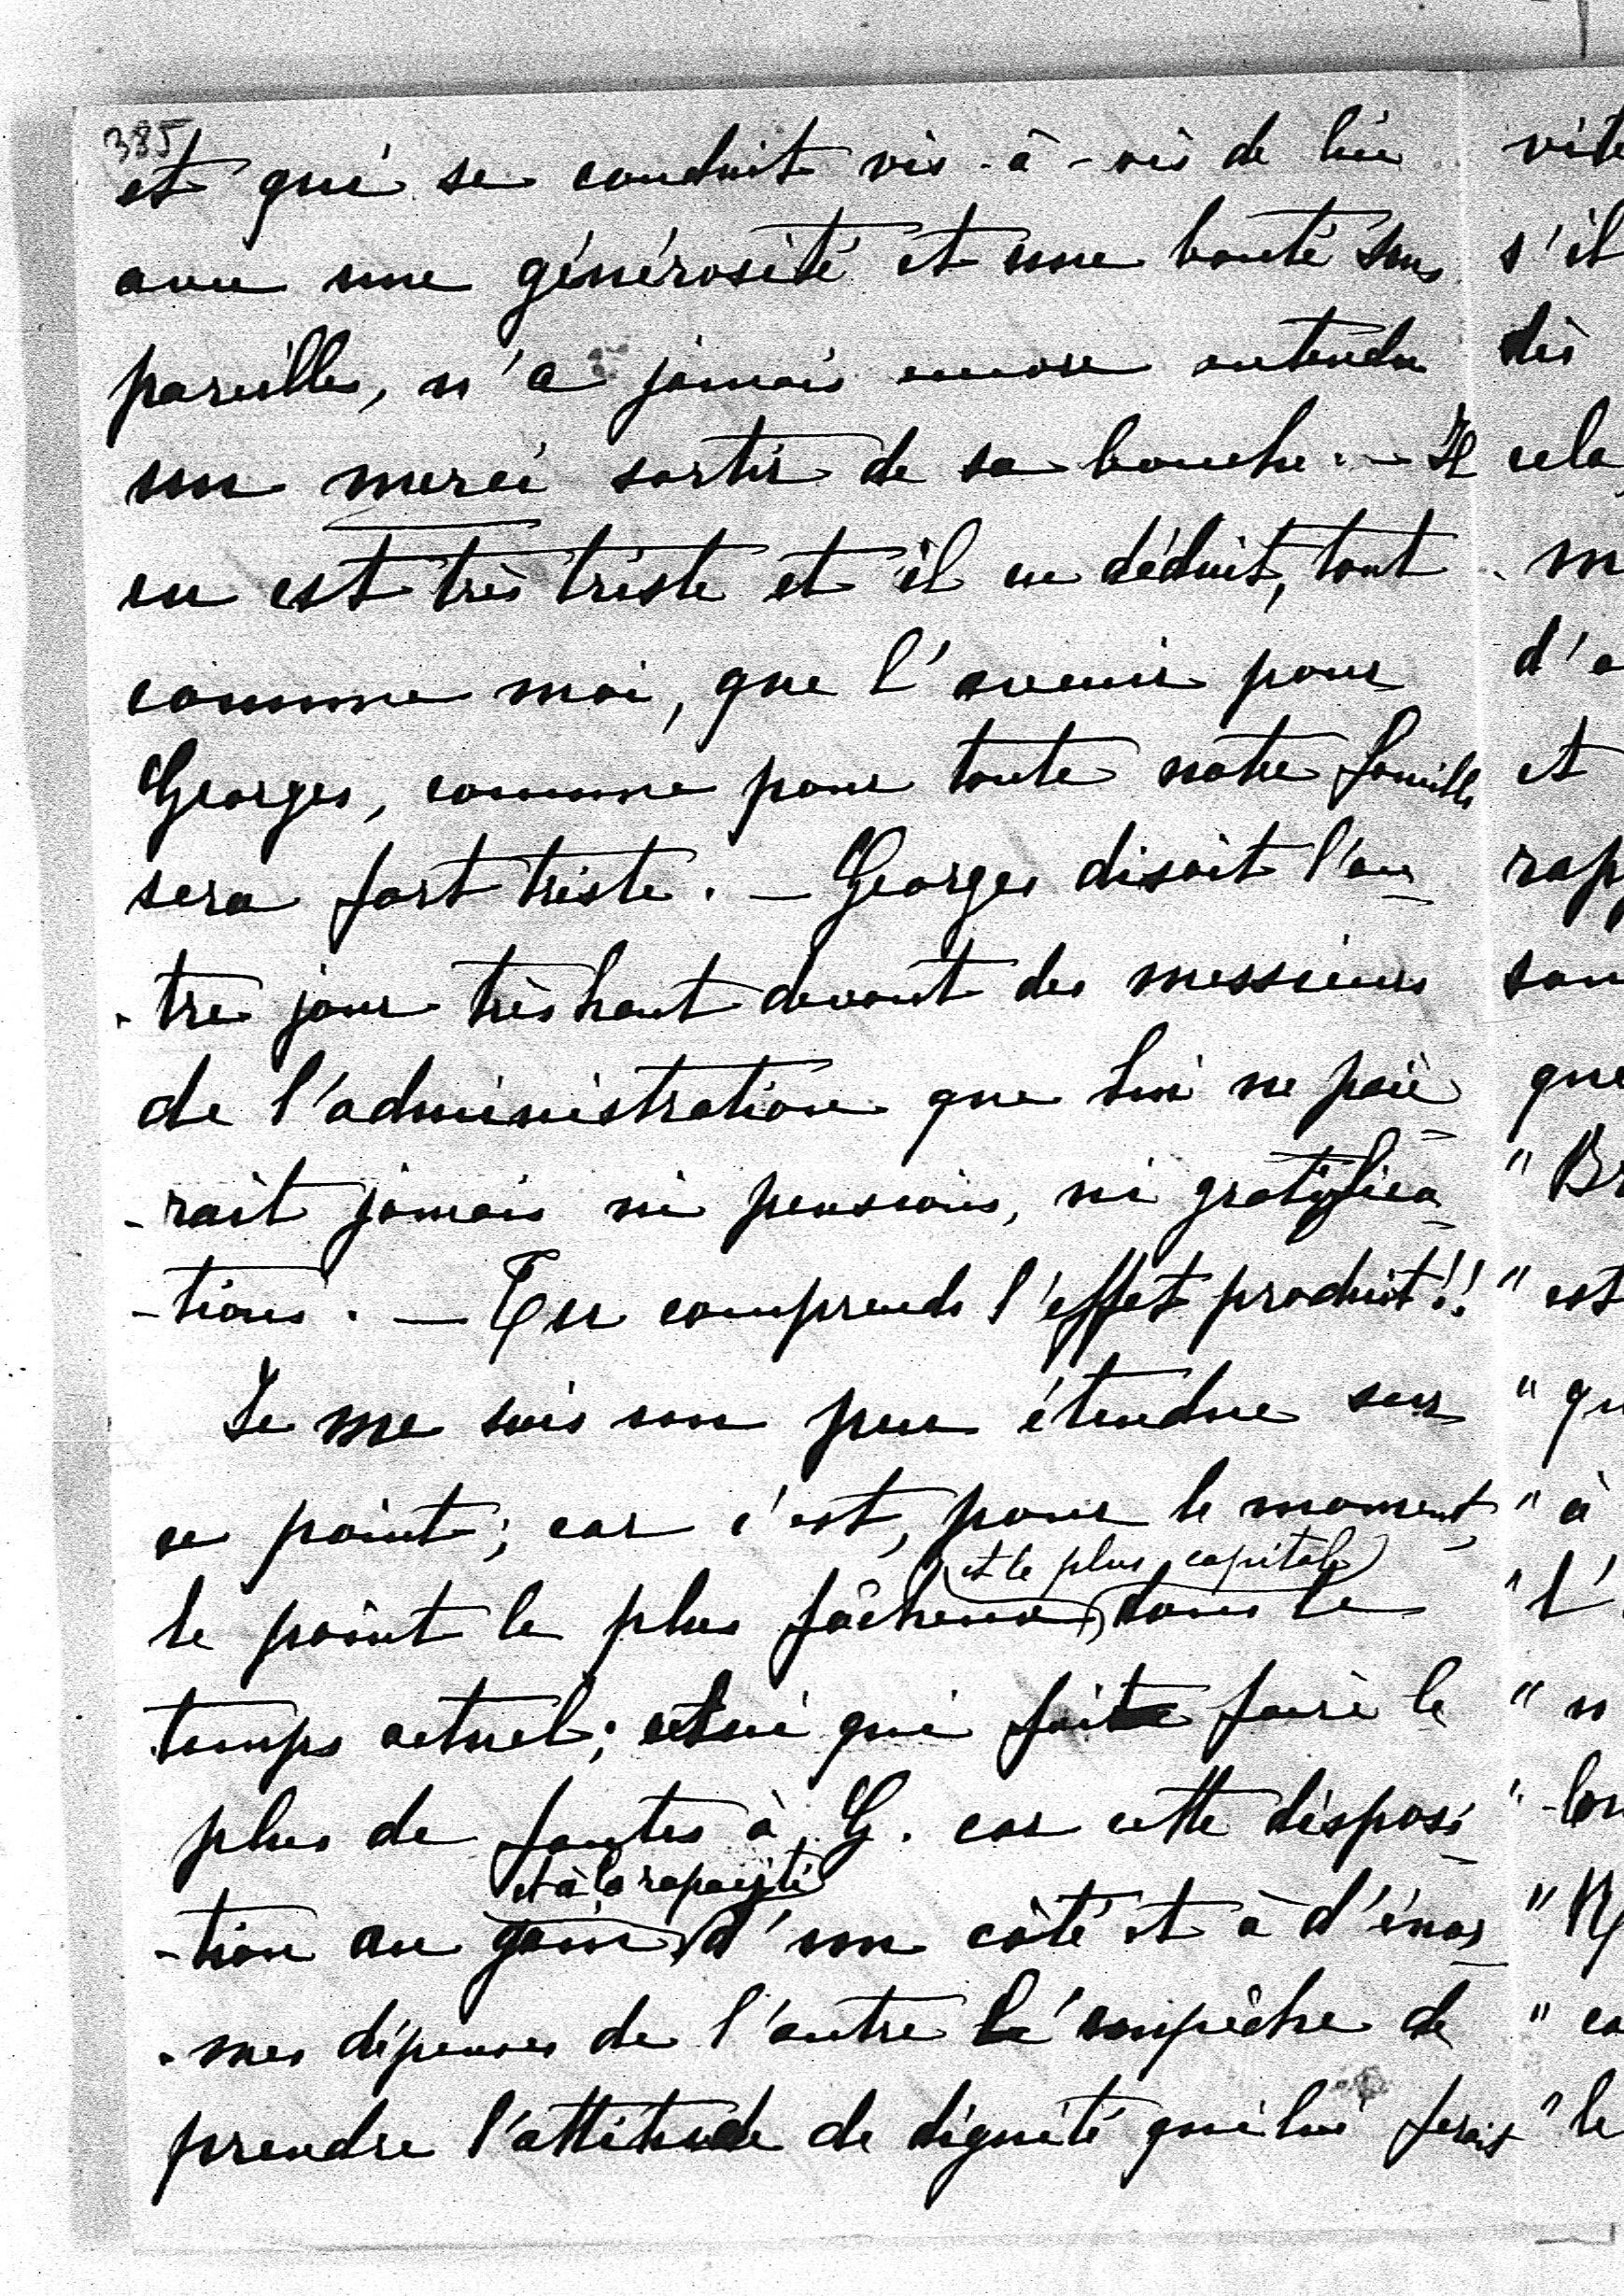 385
et qui se conduit vis-à-vis de lui
avec une générosité et une bonté sans
pareilles, n'a jamais encore entendu
un merci sortir de sa bouche. — Il
en est très triste et il en déduit, tout
comme moi, que l'avenir pour
Georges, comme pour toute notre famille
sera fort triste. — Georges disait l'au-
-tre jour très haut devant des messieurs
de l'administration que lui ne paie-
-rait jamais ni pensions, ni gratifica-
-tions. — Tu comprends l'effet produit!!
Je me suis un peu étendue sur
ce point; car c'est, pour le moment,
le point le plus fâcheux (et le plus capital) dans le
temps actuel; celui qui fait faire le
plus de fautes à G. car cette disposi-
-tion au gain (et à la rapacité) d'un côté et à d'énor-
-mes dépenses de l'autre l'empêche de
prendre l'attitude de dignité qui lui ferait
vite
s'il
dès
cela
m
d'a
et
rap
son
que
" Br
" est
" qu
" à
" L'
" n
" 
" N
" ca
" le